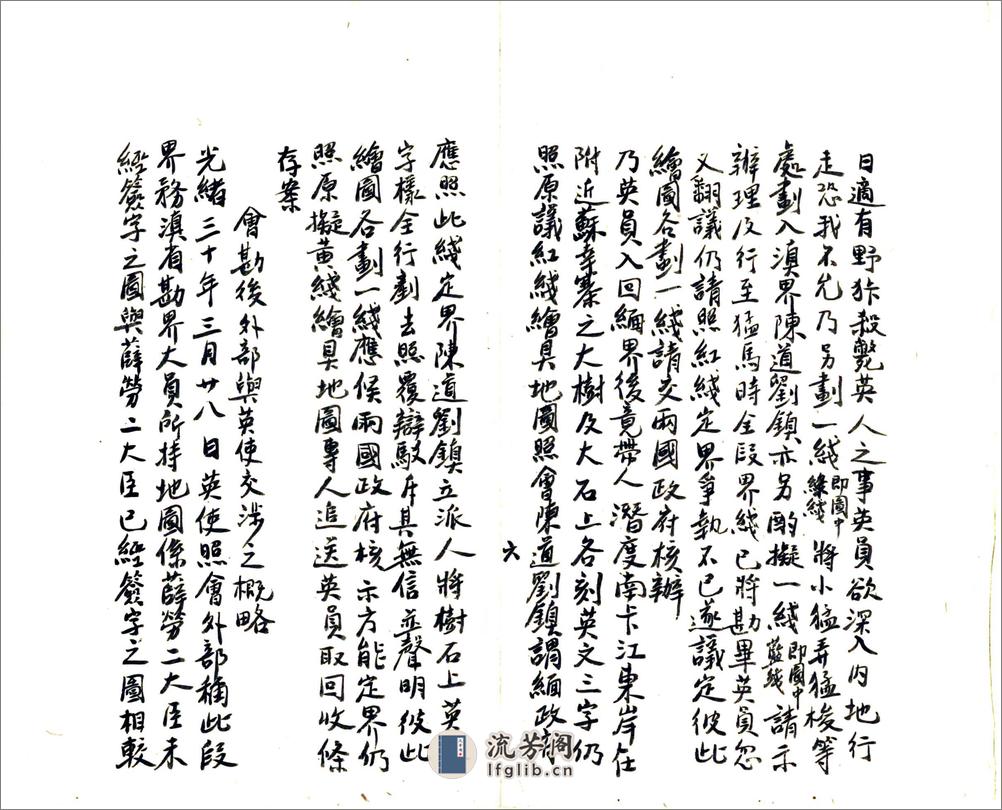 日適有野狝殺斃英人之事英員欲深入內地行
走恐我不允乃另劃一綫即圖中綠綫將小猛弄猛梭等
處劃入滇界陳道劉鎮亦另酌擬一綫即圖中藍綫請示
辦理及行至猛馬時全段界綫已將勘畢英員忽
又翻議仍請照紅綫定界爭執不已遂議定彼此
繪圖各劃一綫請交兩國政府核辦
乃英員入回緬界後竟帶人潛度南卡江東岸在
附近蘇寨之大樹及大石上各刻英文三字仍
照原議紅綫繪具地圖照會陳道劉鎮謂緬政
六
應照此綫定界陳道劉鎮立派人將樹石上英
字樣全行劃去照覆辯駁斥其無信並聲明彼此
繪圖各劃一綫應候兩國政府核示方能定界仍
照原擬黃綫繪具地圖專人追送英員取回收條
存案
會勘後外部與英使交涉之概略
光緒三十年三月廿八日英使照會外部稱此段
界務滇省勘界大員所持地圖係薛勞二大臣未
經簽字之圖與薛勞二大臣已經簽字之圖相較
流芳阁
lfglib.cn